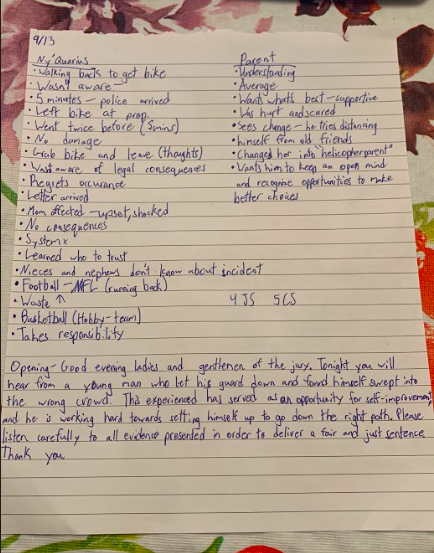 9/13
Ny'Quarius
• Walking back to get bike
• Wasn't aware
• 5 minutes – police arrived
• Left bike at prop.
• Went twice before (5mins)
• No damage
• Grab bike and leave (thoughts)
• Wasn't aware of legal consequences
• Regrets occurance
• Letter arrived
• Mom affected – upset, shocked
• No consequences
• System x
• Learned who to trust
• Nieces and nephews don't know about incident
• Football – NFL (running back)
• Waste ↑
• Basketball (Hobby-team)
• Takes responsibility
Parent
• Understanding
• Average
• Wants what's best – supportive
• Was hurt and scared
• Sees change – he tries distancing
himself from old friends
• Changed her into "helicopter parent"
• Wants him to keep an open mind
and recognize opportunities to make
better choices
4 JS 5CS
Opening – Good evening ladies and gentlemen of the jury. Tonight you will
hear from a young man who let his guard down and found himself swept into
the wrong crowd. This experienced has served as an opportunity for self-improvement
and he is working hard towards setting himself up to go down the right path. Please
listen carefully to all evidence presented in order to deliver a fair and just sentence.
Thank you